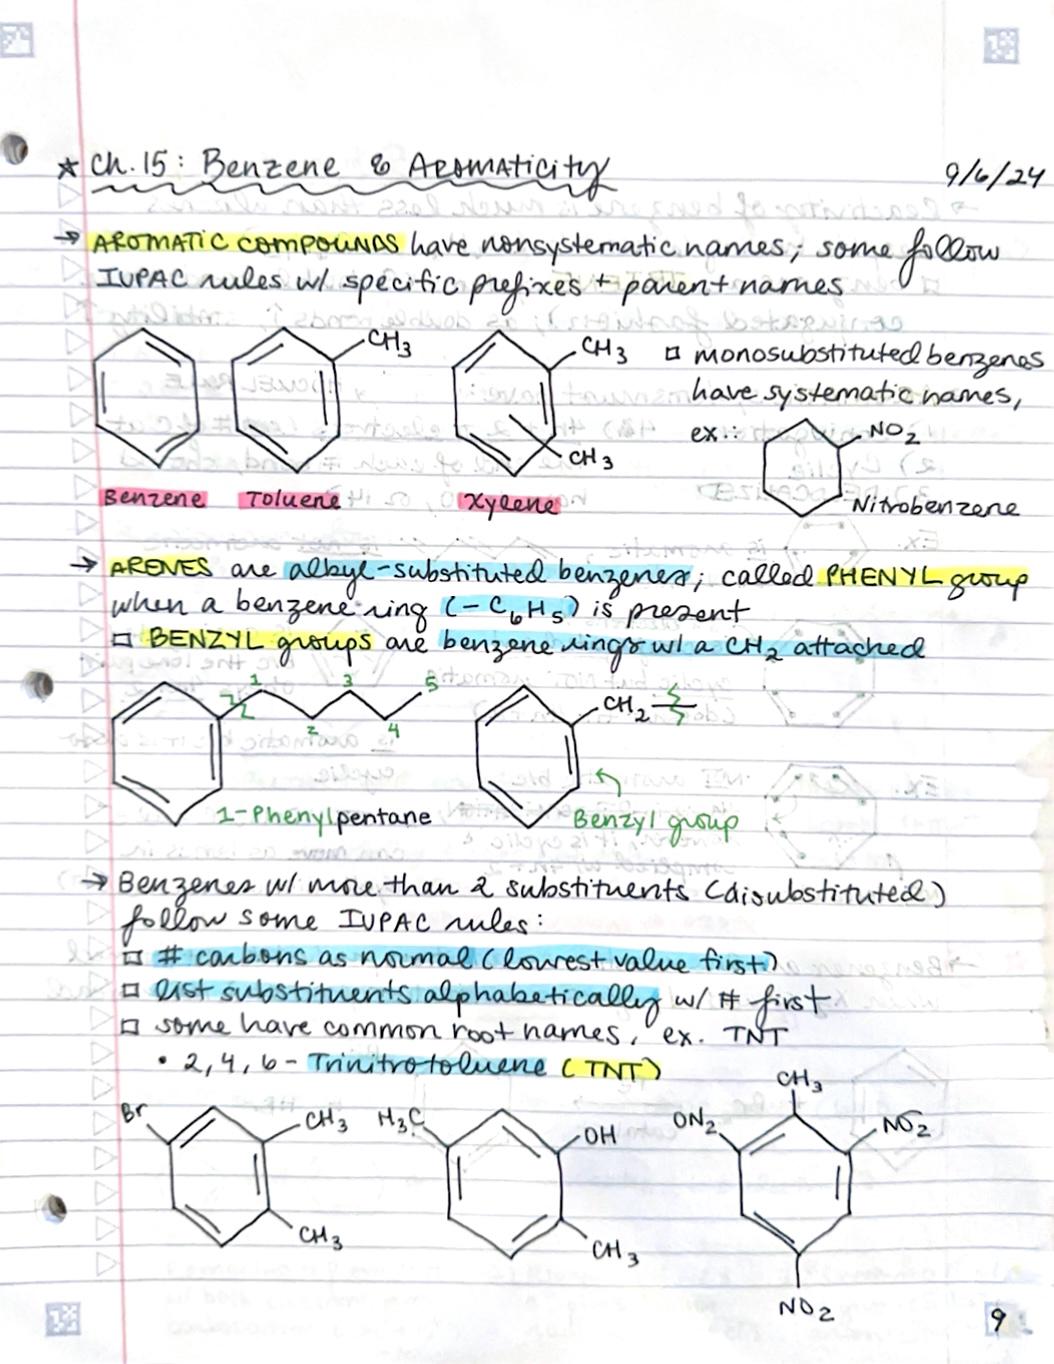 ★ Ch. 15: Benzene & Aromaticity 9/6/24
→ AROMATIC COMPOUNDS have nonsystematic names; some follow
IUPAC rules w/ specific prefixes + parent names
CH3 CH3 □ monosubstituted benzenes
have systematic names,
ex.: NO2
CH3
Benzene Toluene Xylene Nitrobenzene
→ ARENES are alkyl-substituted benzenes; called PHENYL group
when a benzene ring (-C6H5) is present
□ BENZYL groups are benzene rings w/ a CH2 attached
1 3 5 CH2
2 4
1-Phenylpentane Benzyl group
→ Benzenes w/ more than 2 substituents (disubstituted)
follow some IUPAC rules:
□ # carbons as normal (lowest value first)
□ list substituents alphabetically w/ # first
□ some have common root names, ex. TNT
• 2,4,6-Trinitrotoluene (TNT)
CH3
Br CH3 H3C OH ON2 NO2
CH3 CH3
NO2
9